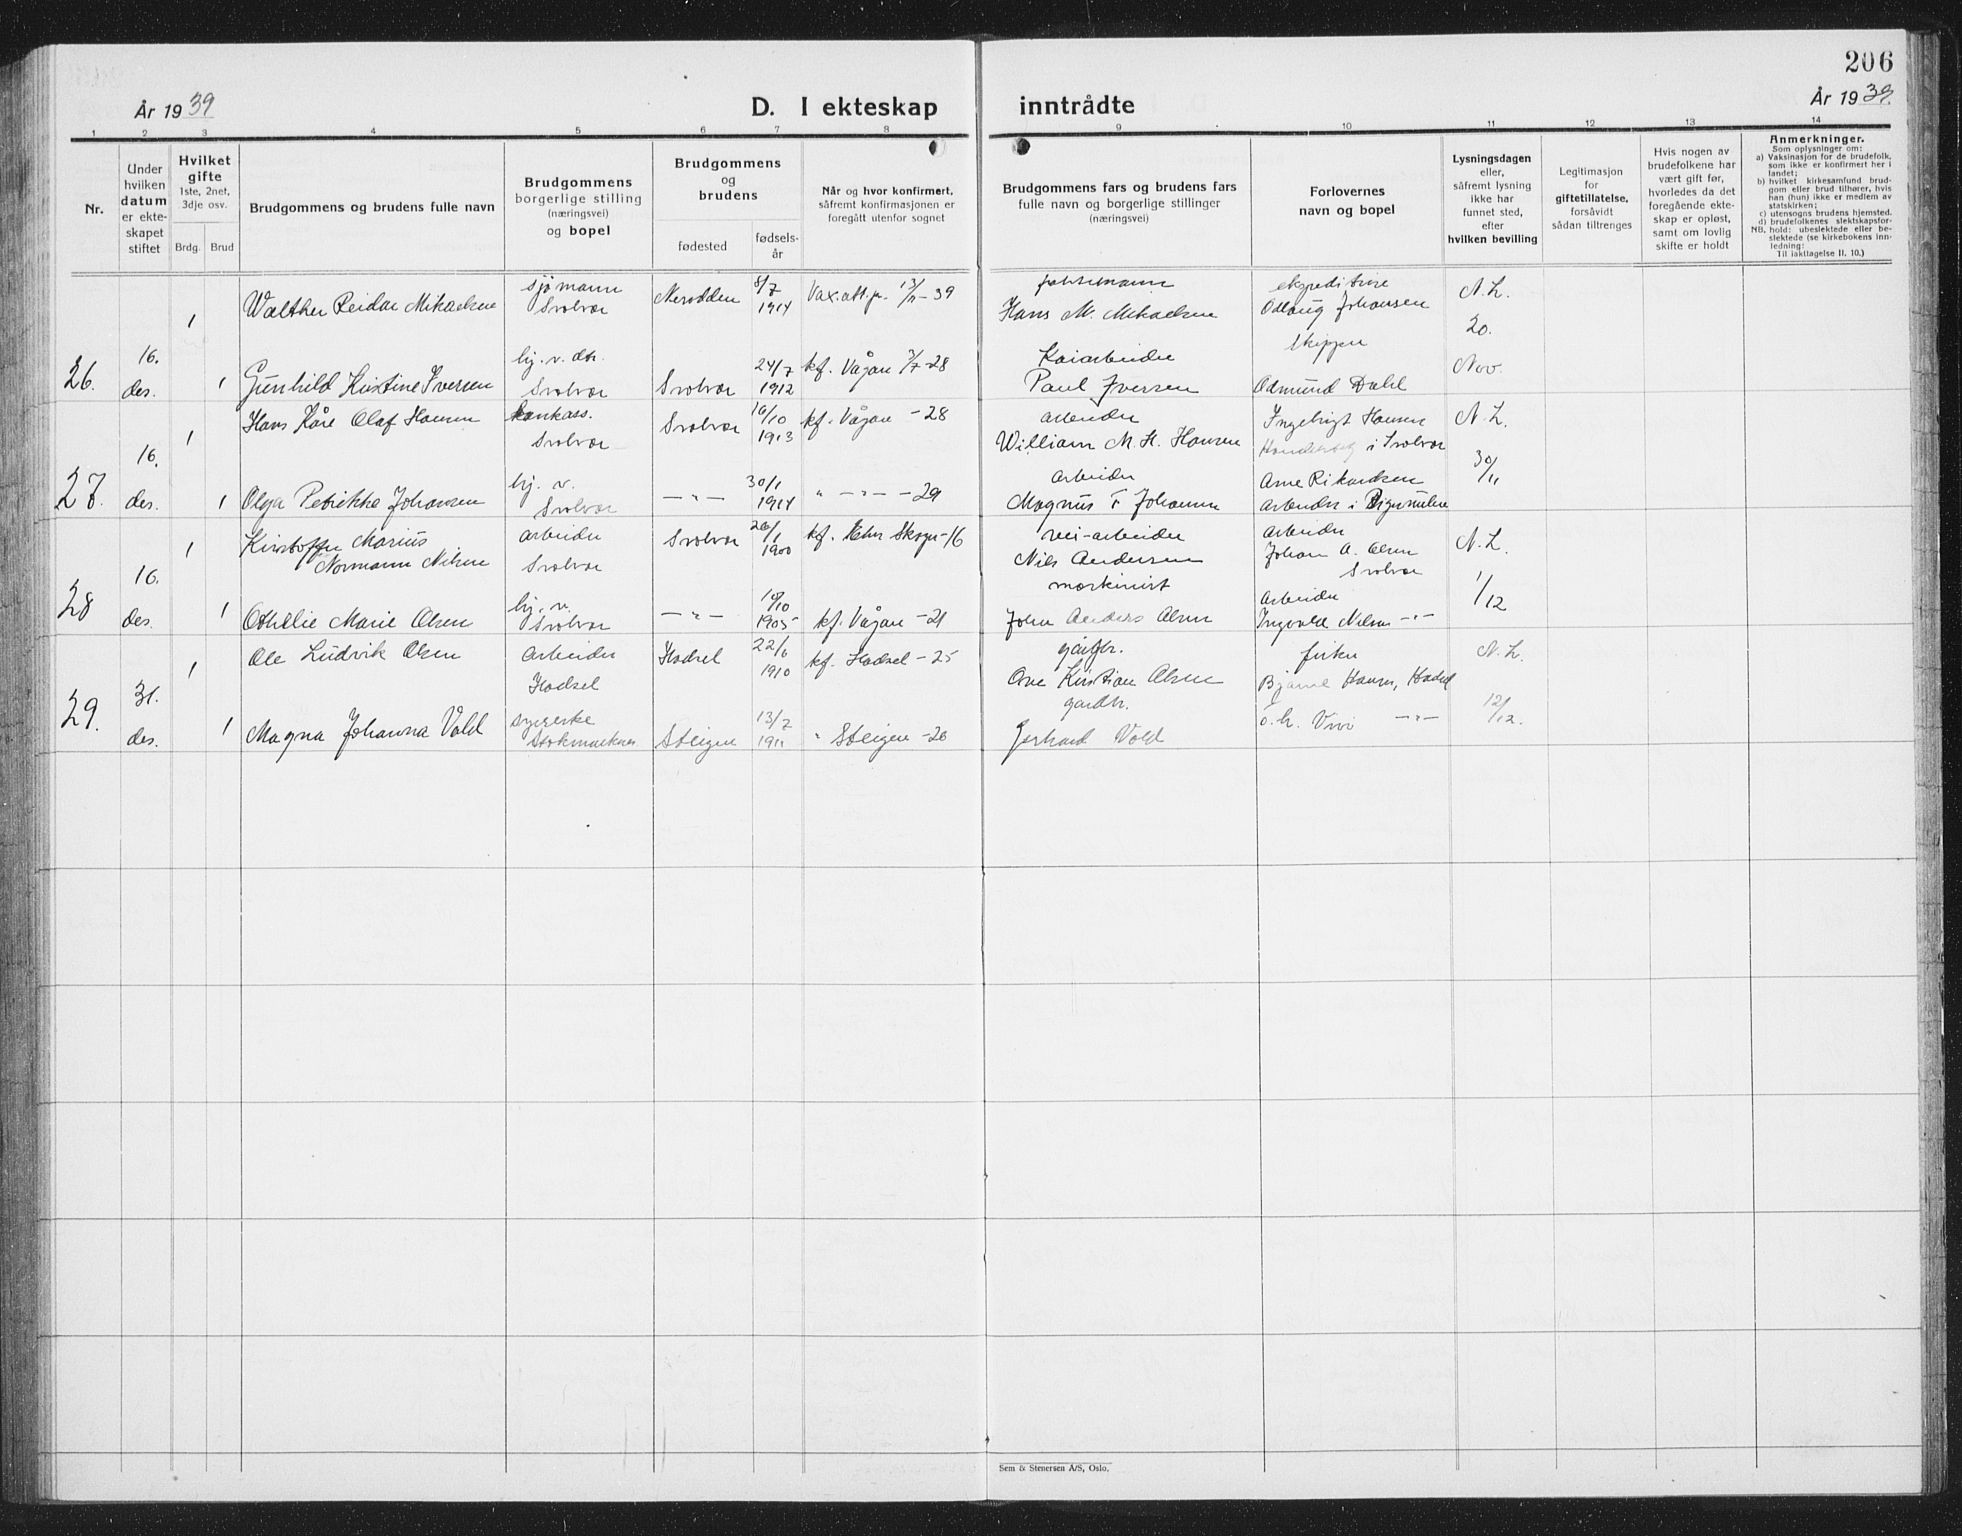 206
År 1939
D. I ekteskap inntrådte
År 1939.
1 2 3 4 5 6 7 8 9 10 11 12 13 14
Nr.
Under
hvilken
datum
er ekte-
skapet
stiftet
Hvilket
gifte
1ste, 2net,
3dje osv.
Brdg. Brud
Brudgommens og brudens fulle navn
Brudgommens
borgerlige stilling
(næringsvei)
og bopel
Brudgommens
og
brudens
fødested
fødsels-
år
Når og hvor konfirmert,
såfremt konfirmasjonen er
foregått utenfor sognet
Brudgommens fars og brudens fars
fulle navn og borgerlige stillinger
(næringsvei)
Forlovernes
navn og bopel
Lysningsdagen
eller,
såfremt lysning
ikke har
funnet sted,
efter
hvilken bevilling
Legitimasjon
for
giftetillatelse,
forsåvidt
sådan tiltrenges
Hvis nogen av
brudefolkene har
vært gift før,
hvorledes da det
foregående ekte-
skap er opløst,
samt om lovlig
skifte er holdt
Anmerkninger.
Som oplysninger om:
a) Vaksinasjon for de brudefolk,
som ikke er konfirmert her i
landet;
b) hvilket kirkesamfund brud-
gom eller brud tilhører, hvis
han (hun) ikke er medlem av
statskirken;
c) utensogns brudens hjemsted.
d) brudefolkenes slektskapsfor-
NB. hold: ubeslektede eller be-
slektede (se kirkebokens inn-
ledning:
Til iakttagelse II. 10.)
26. 16. des.
1 Walther Reidar Mikaelsen sjømann Svolvær 8/7 1914 Vax.att. 13/11-39 Hans M. Mikaelsen Odlaug Johansen N.L. 20. Nov.
1 Gunhild Kristine Iversen hj. v. Svolvær Svolvær 24/7 1912 kf. Vågan 7/7-28 Kaiarbeider Paul Iversen skipper Odmund Dahl
27. 16. des.
1 Hans Kåre Olaf Hansen Svolvær Svolvær 16/10 1913 kf. Vågan -28 arbeider William M. H. Hansen Ingebrigt Hansen i Svolvær N.L. 30/11
1 Olga Petrikke Johansen hj. v. Svolvær —"— 30/1 1914 " —"— -29 arbeider Magnus F Johansen Arne Rikardsen arbeider i
28 16. des.
1 Kristoffer Marius Normann Nilsen arbeider Svolvær Svolvær 26/1 1900 kf. Skogn-16 vei-arbeider Nils Andersen arbeider Johan A. Olsen Svolvær N.L. 1/12
1 Othelie Marie Olsen hj. v. Svolvær —"— 10/10 1905 kf. Vågan -21 maskinist Johan Anders Olsen arbeider Ingvald Nilsen —"—
29. 31. des.
1 Ole Ludvik Olsen arbeider Hadsel Hadsel 22/6 1910 kf. Hadsel -25 gårdbr. Ove Kristian Olsen fisker Bjarne Hansen, Hadsel N.L. 12/12.
1 Magna Johanna Vold syerske Stokmarknes Steigen 13/7 1911 " Steigen -26 gardbr. Gerhard Vold —"—
Sem & Stenersen A/S, Oslo.